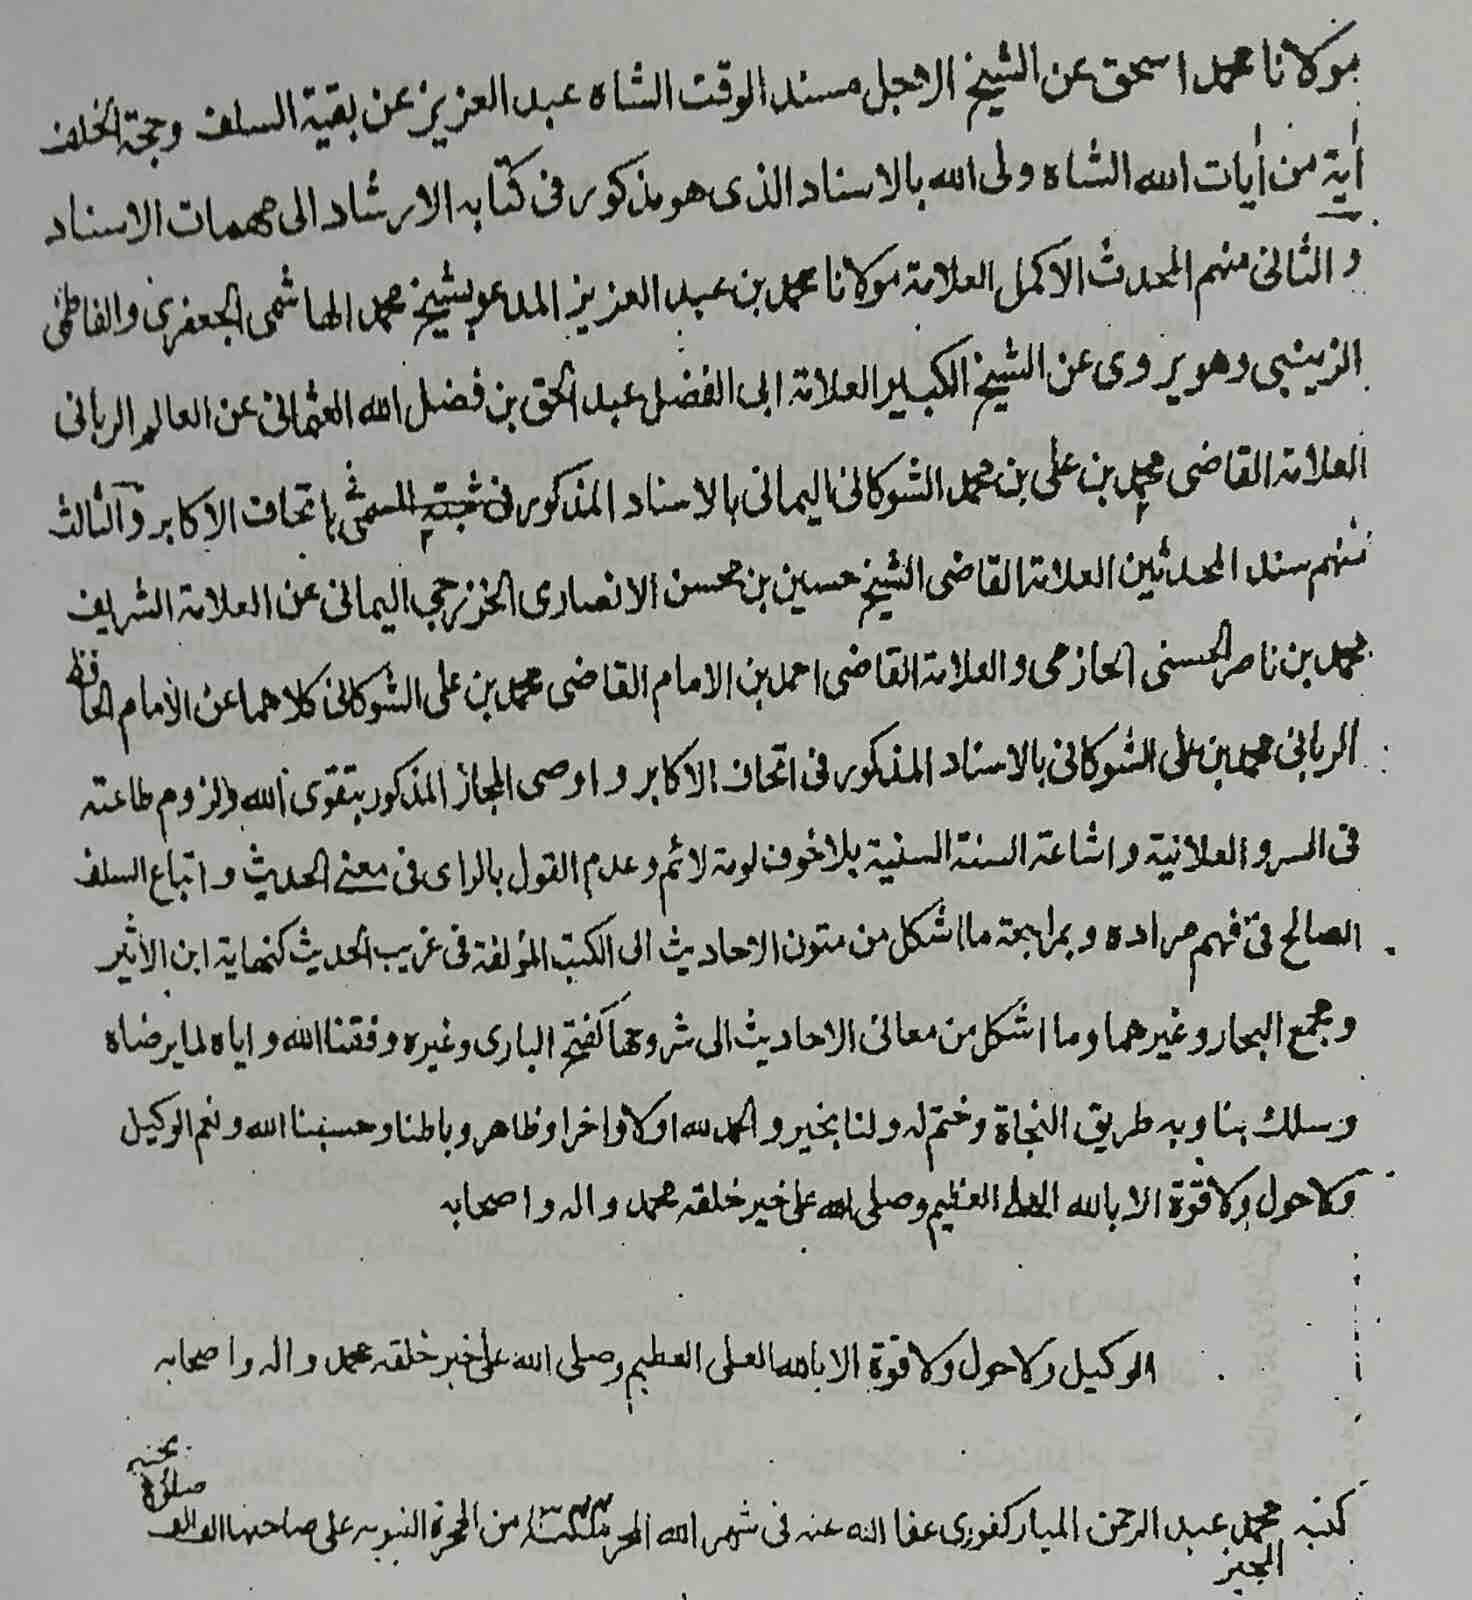 مولانا محمد اسحق عن الشيخ الاجل مسند الوقت الشاه عبد العزيز عن بقية السلف وحجة الخلف
أية من أيات الله الشاه ولى الله بالاسناد الذى هو مذكور فى كتابه الارشاد الى مهمات الاسناد
و الثانى منهم المحدث الاكمل العلامة مولانا محمد بن عبد العزيز المدعو بشيخ محمد الهاشمى الجعفرى والفاطمى
الزينبى وهو يروى عن الشيخ الكبير العلامة ابى الفضل عبد الحق بن فضل الله العثمانى عن العالم الربانى
العلامة القاضى محمد بن على بن محمد الشوكانى اليمانى بالاسناد المذكور فى ثبته المسمى باتحاف الاكابر والثالث
منهم سند المحدثين العلامة القاضى الشيخ حسين بن محسن الانصارى الخزرجى اليمانى عن العلامة الشريف
محمد بن ناصر الحسنى الحازمى والعلامة القاضى احمد بن الامام القاضى محمد بن على الشوكانى كلاهما عن الامام الحافظ
الربانى محمد بن على الشوكانى بالاسناد المذكور فى اتحاف الاكابر و اوصى المجاز المذكور بتقوى الله ولزوم طاعته
فى السر و العلانية و اشاعة السنة السنية بلا خوف لومة لائم وعدم القول بالراى فى معنى الحديث و اتباع السلف
الصالح فى فهم مراده و بمراجعة ما اشكل من متون الاحاديث الى الكتب المؤلفة فى غريب الحديث كنهاية ابن الأثير
و مجمع البحار وغيرهما وما اشكل من معانى الاحاديث الى شروحها كفتح البارى وغيره وفقنا الله و اياه لما يرضاه
وسلك بنا وبه طريق النجاة وختم له ولنا بخير و الحمد لله اولا واخرا وظاهر وباطنا وحسبنا الله ونعم الوكيل
ولا حول ولا قوة الا بالله العلى العظيم وصلى الله على خير خلقه محمد واله و اصحابه
الوكيل ولا حول ولا قوة الا بالله العلى العظيم وصلى الله على خير خلقه محمد واله واصحابه
كتبه محمد عبد الرحمن المباركفورى عفا الله عنه فى شهر الله المحرم من الهجرة النبويه على صاحبها الف الف
المجيز صلوة